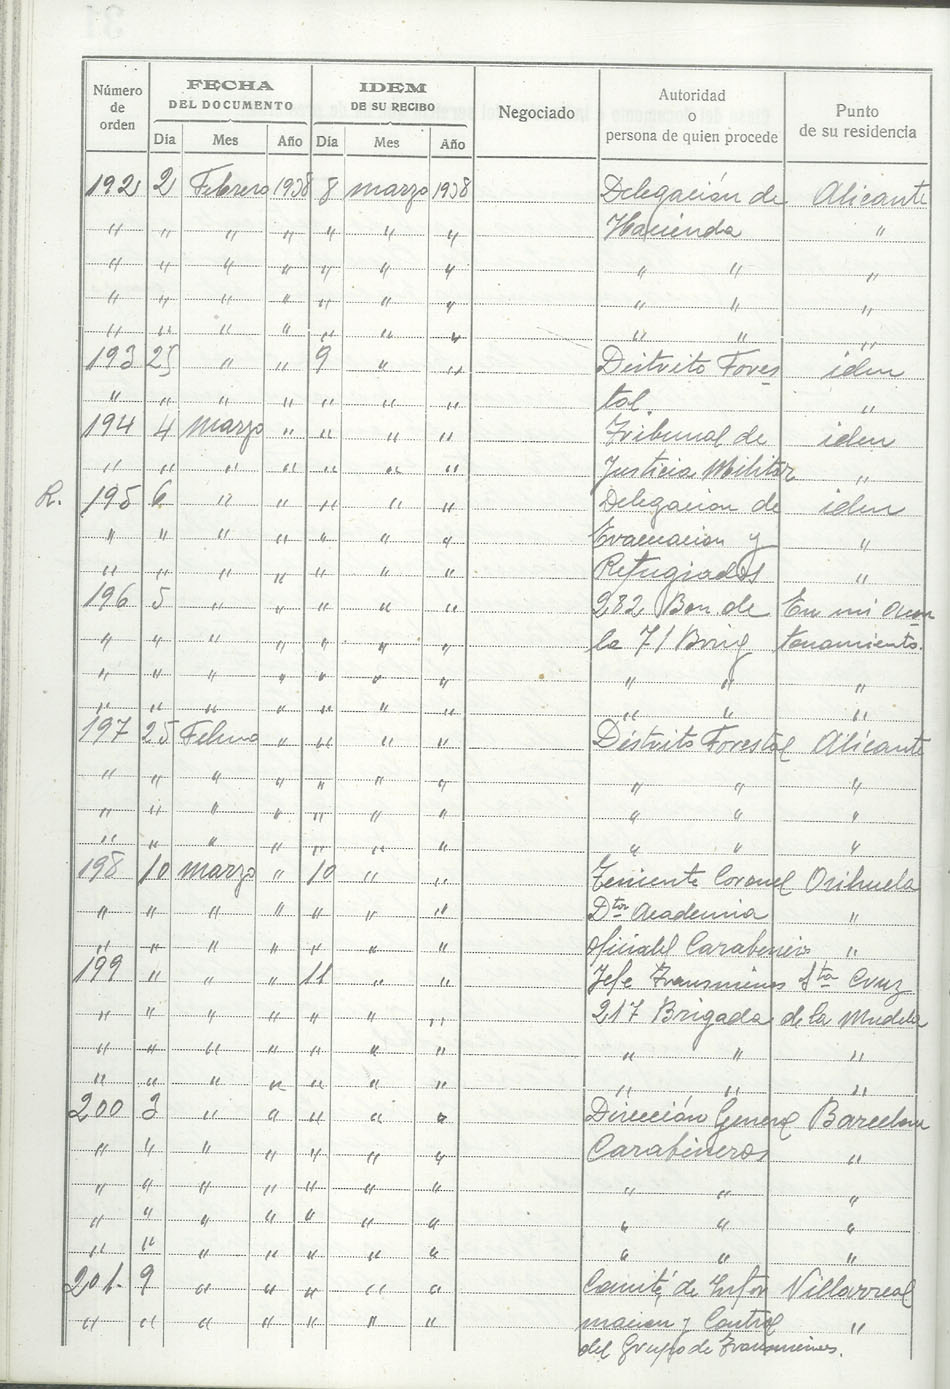 Número de orden | FECHA DEL DOCUMENTO | IDEM DE SU RECIBO | Negociado | Autoridad o persona de quien procede | Punto de su residencia
Día | Mes | Año | Día | Mes | Año
192 2 Febrero 1938 8 marzo 1938 Delegación de Alicante
" " " " " " " Hacienda "
" " " " " " " " " "
" " " " " " " " " "
" " " " " " " " " "
193 25 " " 9 " " Distrito Fores iden
" " " " " " " tal. "
194 4 marzo " " " " Tribunal de iden
" " " " " " " Justicia Militar "
R. 195 6 " " " " " Delegacion de iden
" " " " " " " Evacuacion y "
" " " " " " " Refugiados "
196 5 " " " " " 282 Bon de En mi acan
" " " " " " " la 71 Brig tonamiento.
" " " " " " " " " "
" " " " " " " " " "
197 25 Febrero " " " " Distrito Forestal Alicante
" " " " " " " " " "
" " " " " " " " " "
" " " " " " " " " "
198 10 marzo " 10 " " Teniente Coronel Orihuela
" " " " " " " Dtor Academia "
" " " " " " " Oficial Carabineros "
199 " " " 11 " " Jefe Transmines Sta Cruz
" " " " " " " 217 Brigada de la Mudela
" " " " " " " " " "
" " " " " " " " " "
200 3 " " " " " Dirección General Barcelona
" " " " " " " Carabineros "
" " " " " " " " " "
" " " " " " " " " "
" " " " " " " " " "
201. 9 " " " " " Comité de Infor Villarreal
" " " " " " " macion y Control "
del Grupo de Transmines.